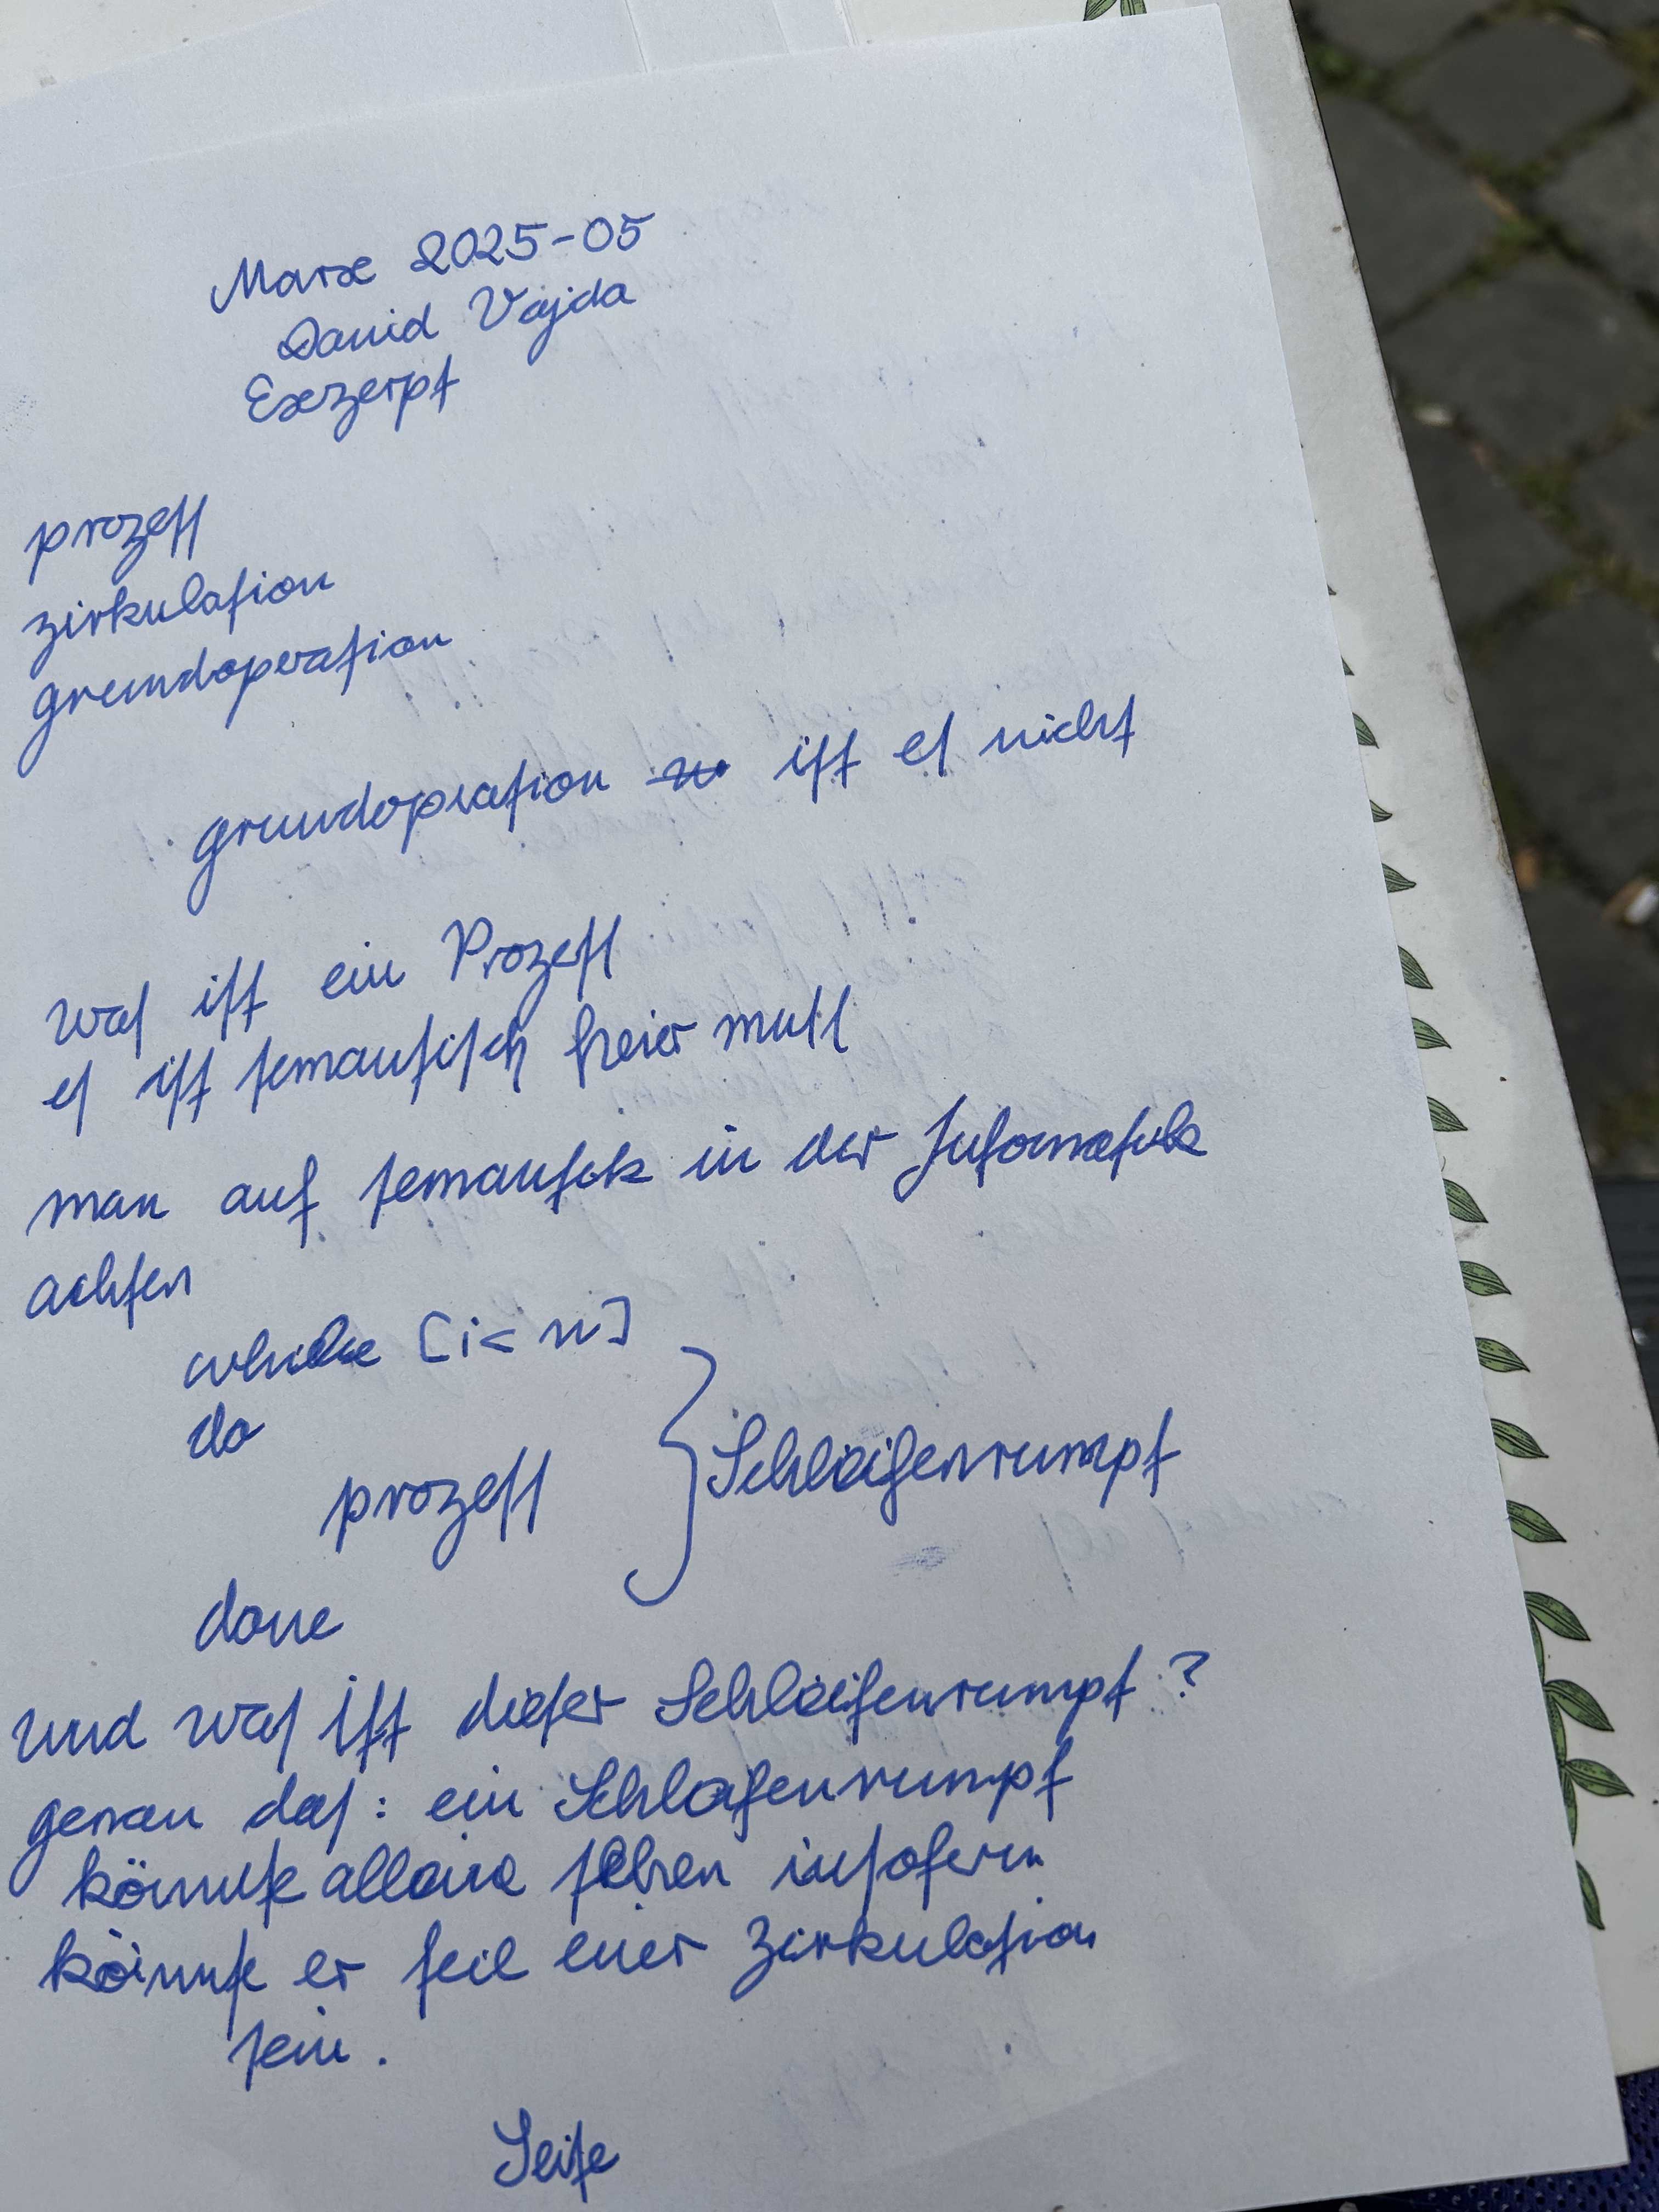 Marx 2025-05
David Vajda
Exzerpt
prozess
zirkulation
grundoperation
grundopration ist es nicht
was ist ein Prozess
es ist semantisch hreier muss
man auf semantik in der Informatik
achten
while [i < n]
do
prozess } Schleifenrumpf
done
und was ist dieser Schleifenrumpf?
genau das: ein Schleifenrumpf
könnte alleine stehen insofern
könnte er teil einer zirkulation
sein.
Seite